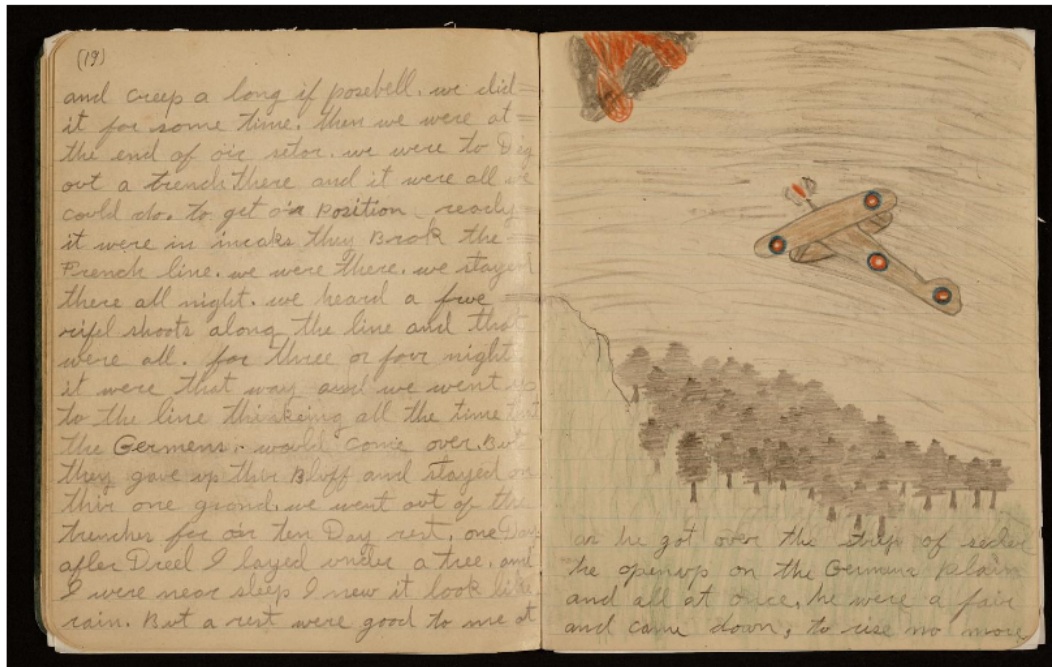 (19)
and creep a long if posebell. we did =
it for some time. then we were at =
the end of oir setor. we were to Dig
out a trench there and it were all we
could do. to get oir Position ready
it were in incaks they Brok the
French line. we were there. we stayed
there all night. we heard a fwe
rifel shoots along the line and that
were all. for three or four night
it were that way and we went up
to the line thinking all the time that
the Germens. would come over. But
they gave up ther Bluff and stayed on
thir one grond. we went out of the
trenches for oir ten Day rest, one Day
after Dreel I layed under a tree, and
I were near sleep I new it look like
rain. But a rest were good to me at
as he got over the strip of
he openup on the Germenr plain
and all at once, he were a fair
and came down, to rise no more